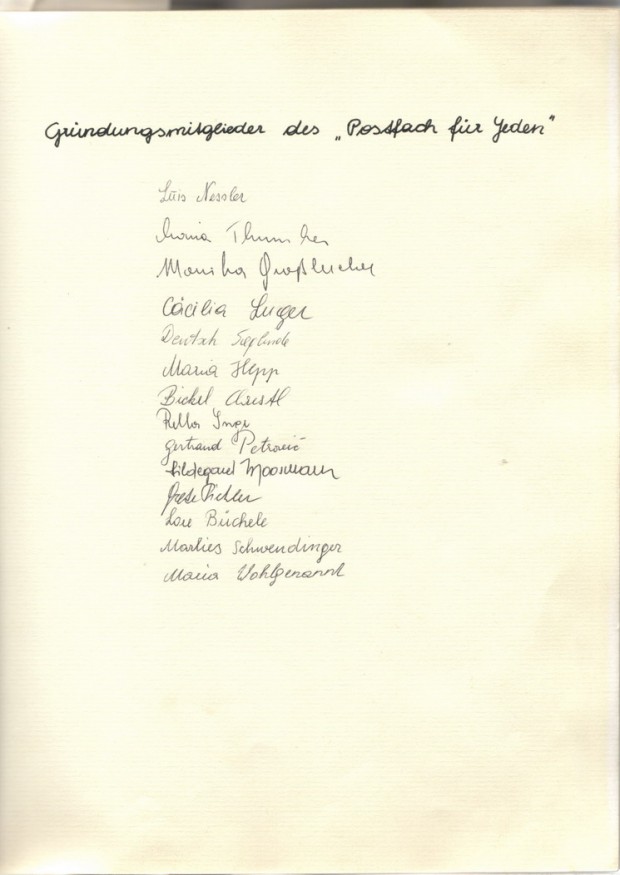 Gründungsmitglieder des „Postfach für Jeden“
Luis Nessler
Maria
Monika
Cäcilia Luger
Deutsch Sieglinde
Maria Hepp
Bickel Christl
Inge
Gertraud Petrović
Hildegard Moosmann
Grete Pichler
Lore Büchele
Marlies Schwendinger
Maria Wohlgenannt